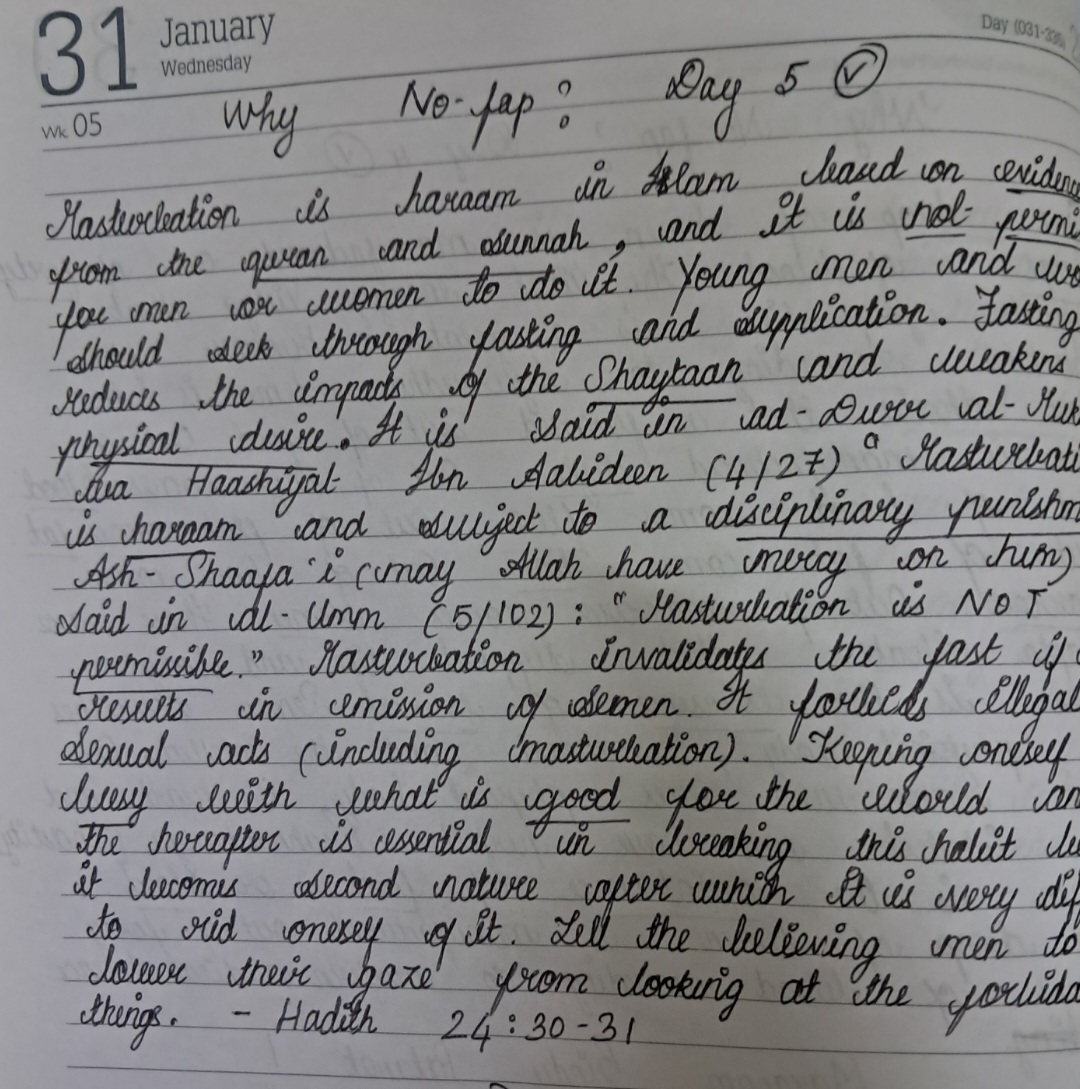 31 January
Wednesday
Day (031-335)
Wk 05
Why No-fap? Day 5
Masturbation is haraam in Islam based on evidenc
from the quran and sunnah, and it is not permi
for men or women to do it. Young men and wo
should seek through fasting and supplication. Fasting
reduces the impacts of the Shaytaan and weakens
physical desire. It is said in ad-Durr al-Muk
wa Haashiyat Ibn Aabideen (4/27) " Masturbati
is haraam and subject to a disciplinary punishm
Ash-Shaafa'i (may Allah have mercy on him)
said in al-Umm (5/102): "Masturbation is NOT
permissible." Masturbation invalidates the fast if
results in emission of semen. It forbids illegal
sexual acts (including masturbation). Keeping oneself
busy with what is good for the world an
the hereafter is essential in breaking this habit be
it becomes second nature after which it is very dif
to rid onesef of it. Tell the believing men to
lower their gaze from looking at the forbidd
things. - Hadith 24:30-31